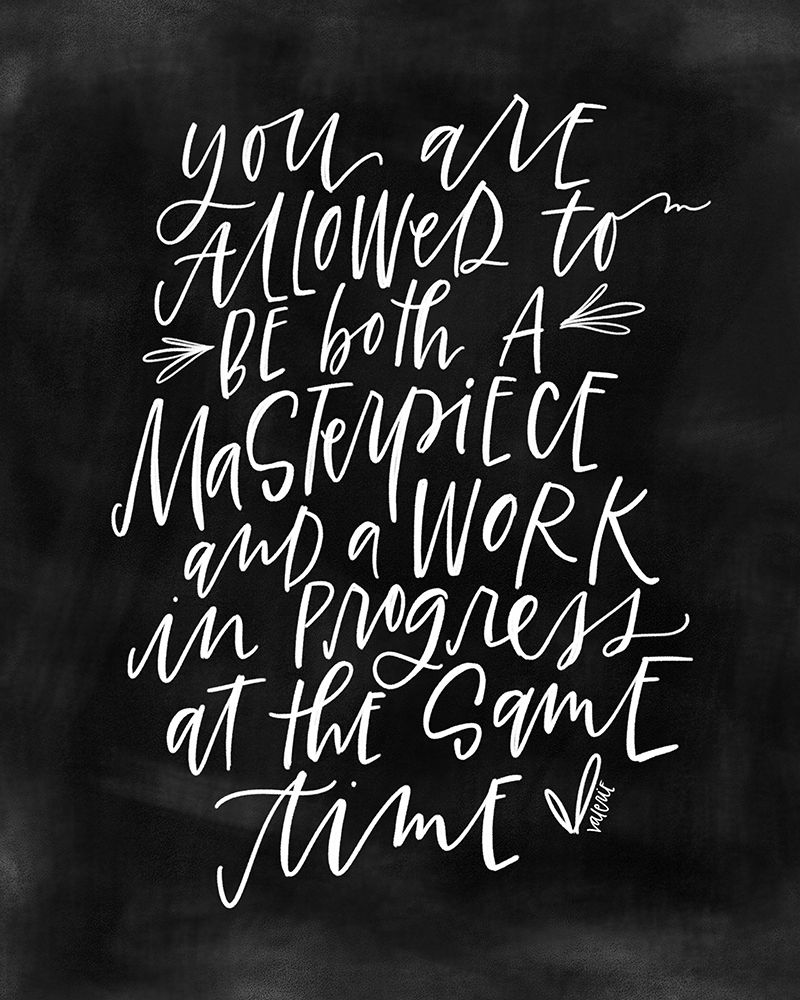 you are
ALLOWED to
BE both A
MaSTerpiECE
and a WORK
in PROgress
aT the SamE
timE
valerie